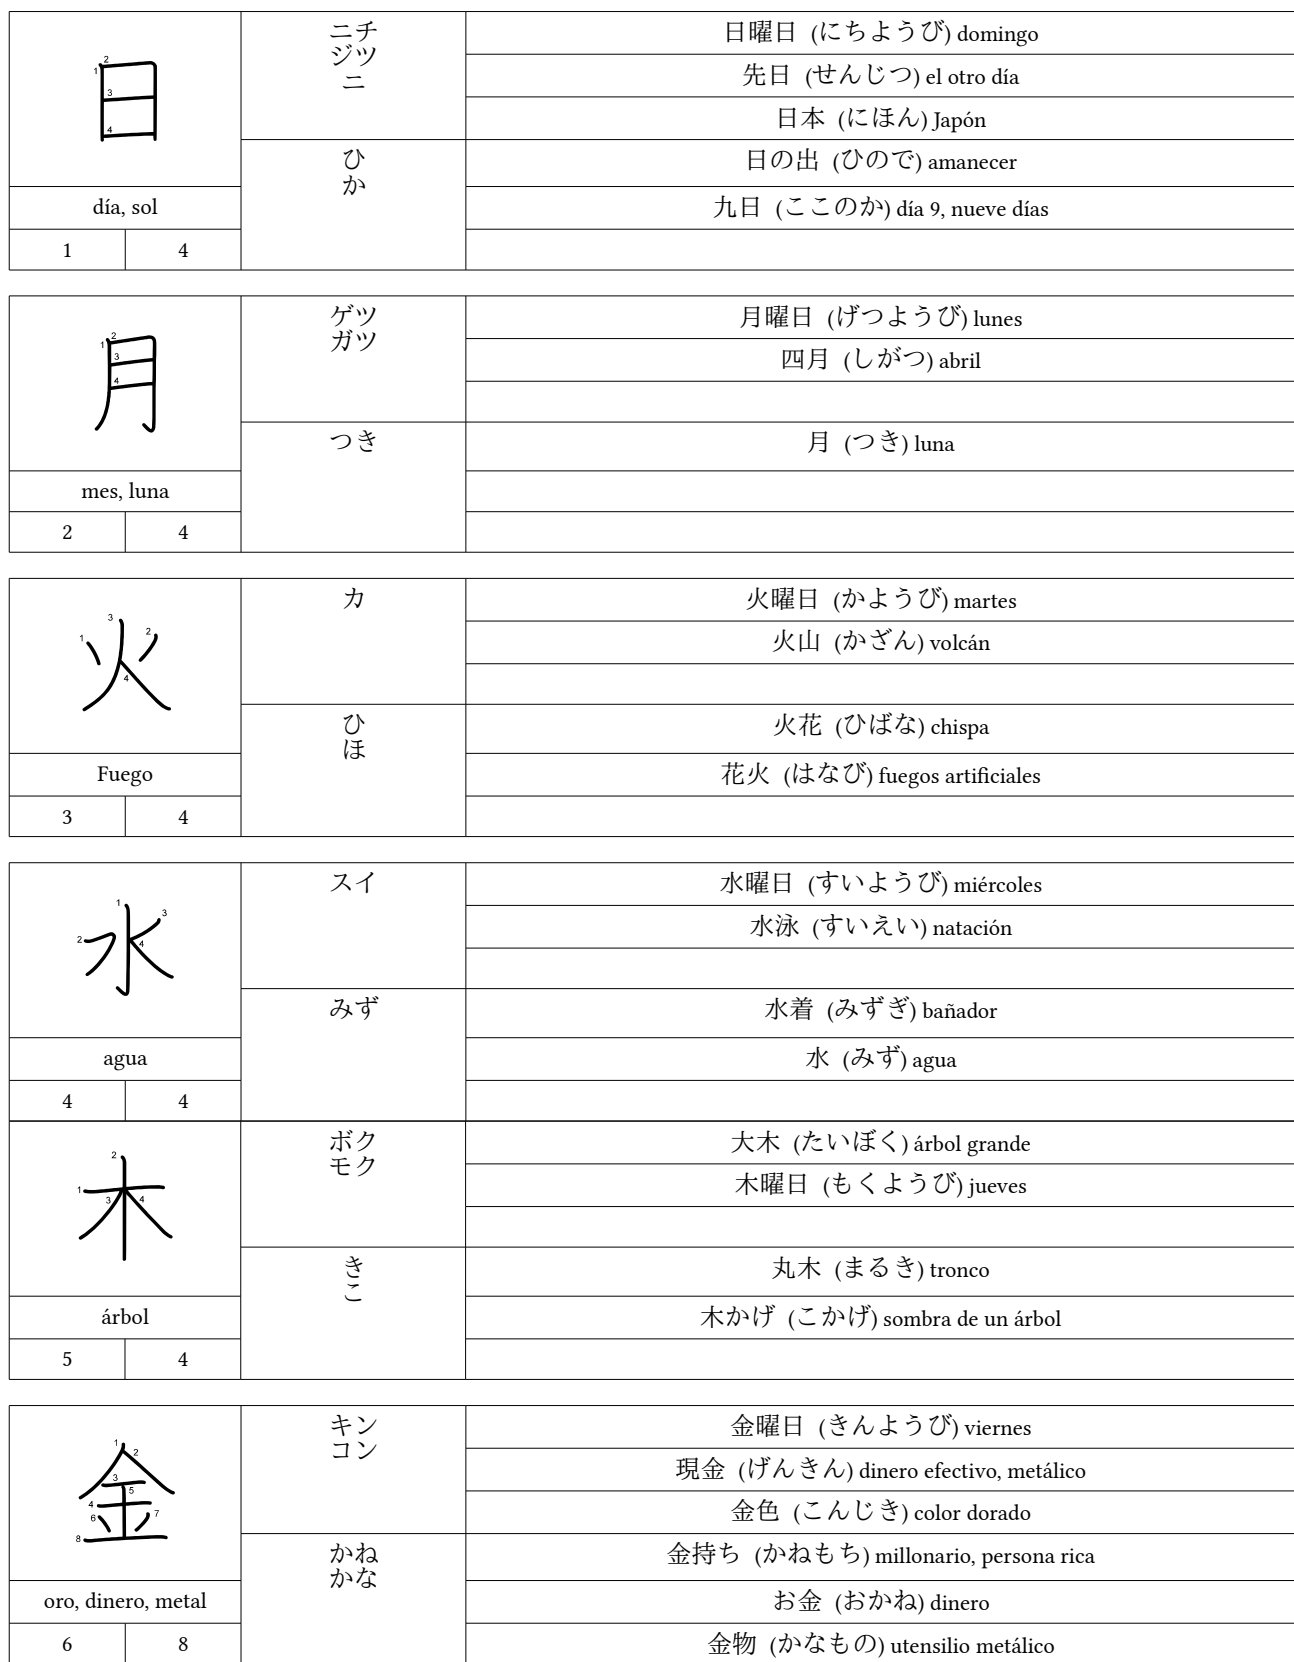 日
día, sol
1 4
ニチ
ジツ
ニ
日曜日 (にちようび) domingo
先日 (せんじつ) el otro día
日本 (にほん) Japón
ひ
か
日の出 (ひので) amanecer
九日 (ここのか) día 9, nueve días
月
mes, luna
2 4
ゲツ
ガツ
月曜日 (げつようび) lunes
四月 (しがつ) abril
つき
月 (つき) luna
火
Fuego
3 4
カ
火曜日 (かようび) martes
火山 (かざん) volcán
ひ
ほ
火花 (ひばな) chispa
花火 (はなび) fuegos artificiales
水
agua
4 4
スイ
水曜日 (すいようび) miércoles
水泳 (すいえい) natación
みず
水着 (みずぎ) bañador
水 (みず) agua
木
árbol
5 4
ボク
モク
大木 (たいぼく) árbol grande
木曜日 (もくようび) jueves
き
こ
丸木 (まるき) tronco
木かげ (こかげ) sombra de un árbol
金
oro, dinero, metal
6 8
キン
コン
金曜日 (きんようび) viernes
現金 (げんきん) dinero efectivo, metálico
金色 (こんじき) color dorado
かね
かな
金持ち (かねもち) millonario, persona rica
お金 (おかね) dinero
金物 (かなもの) utensilio metálico